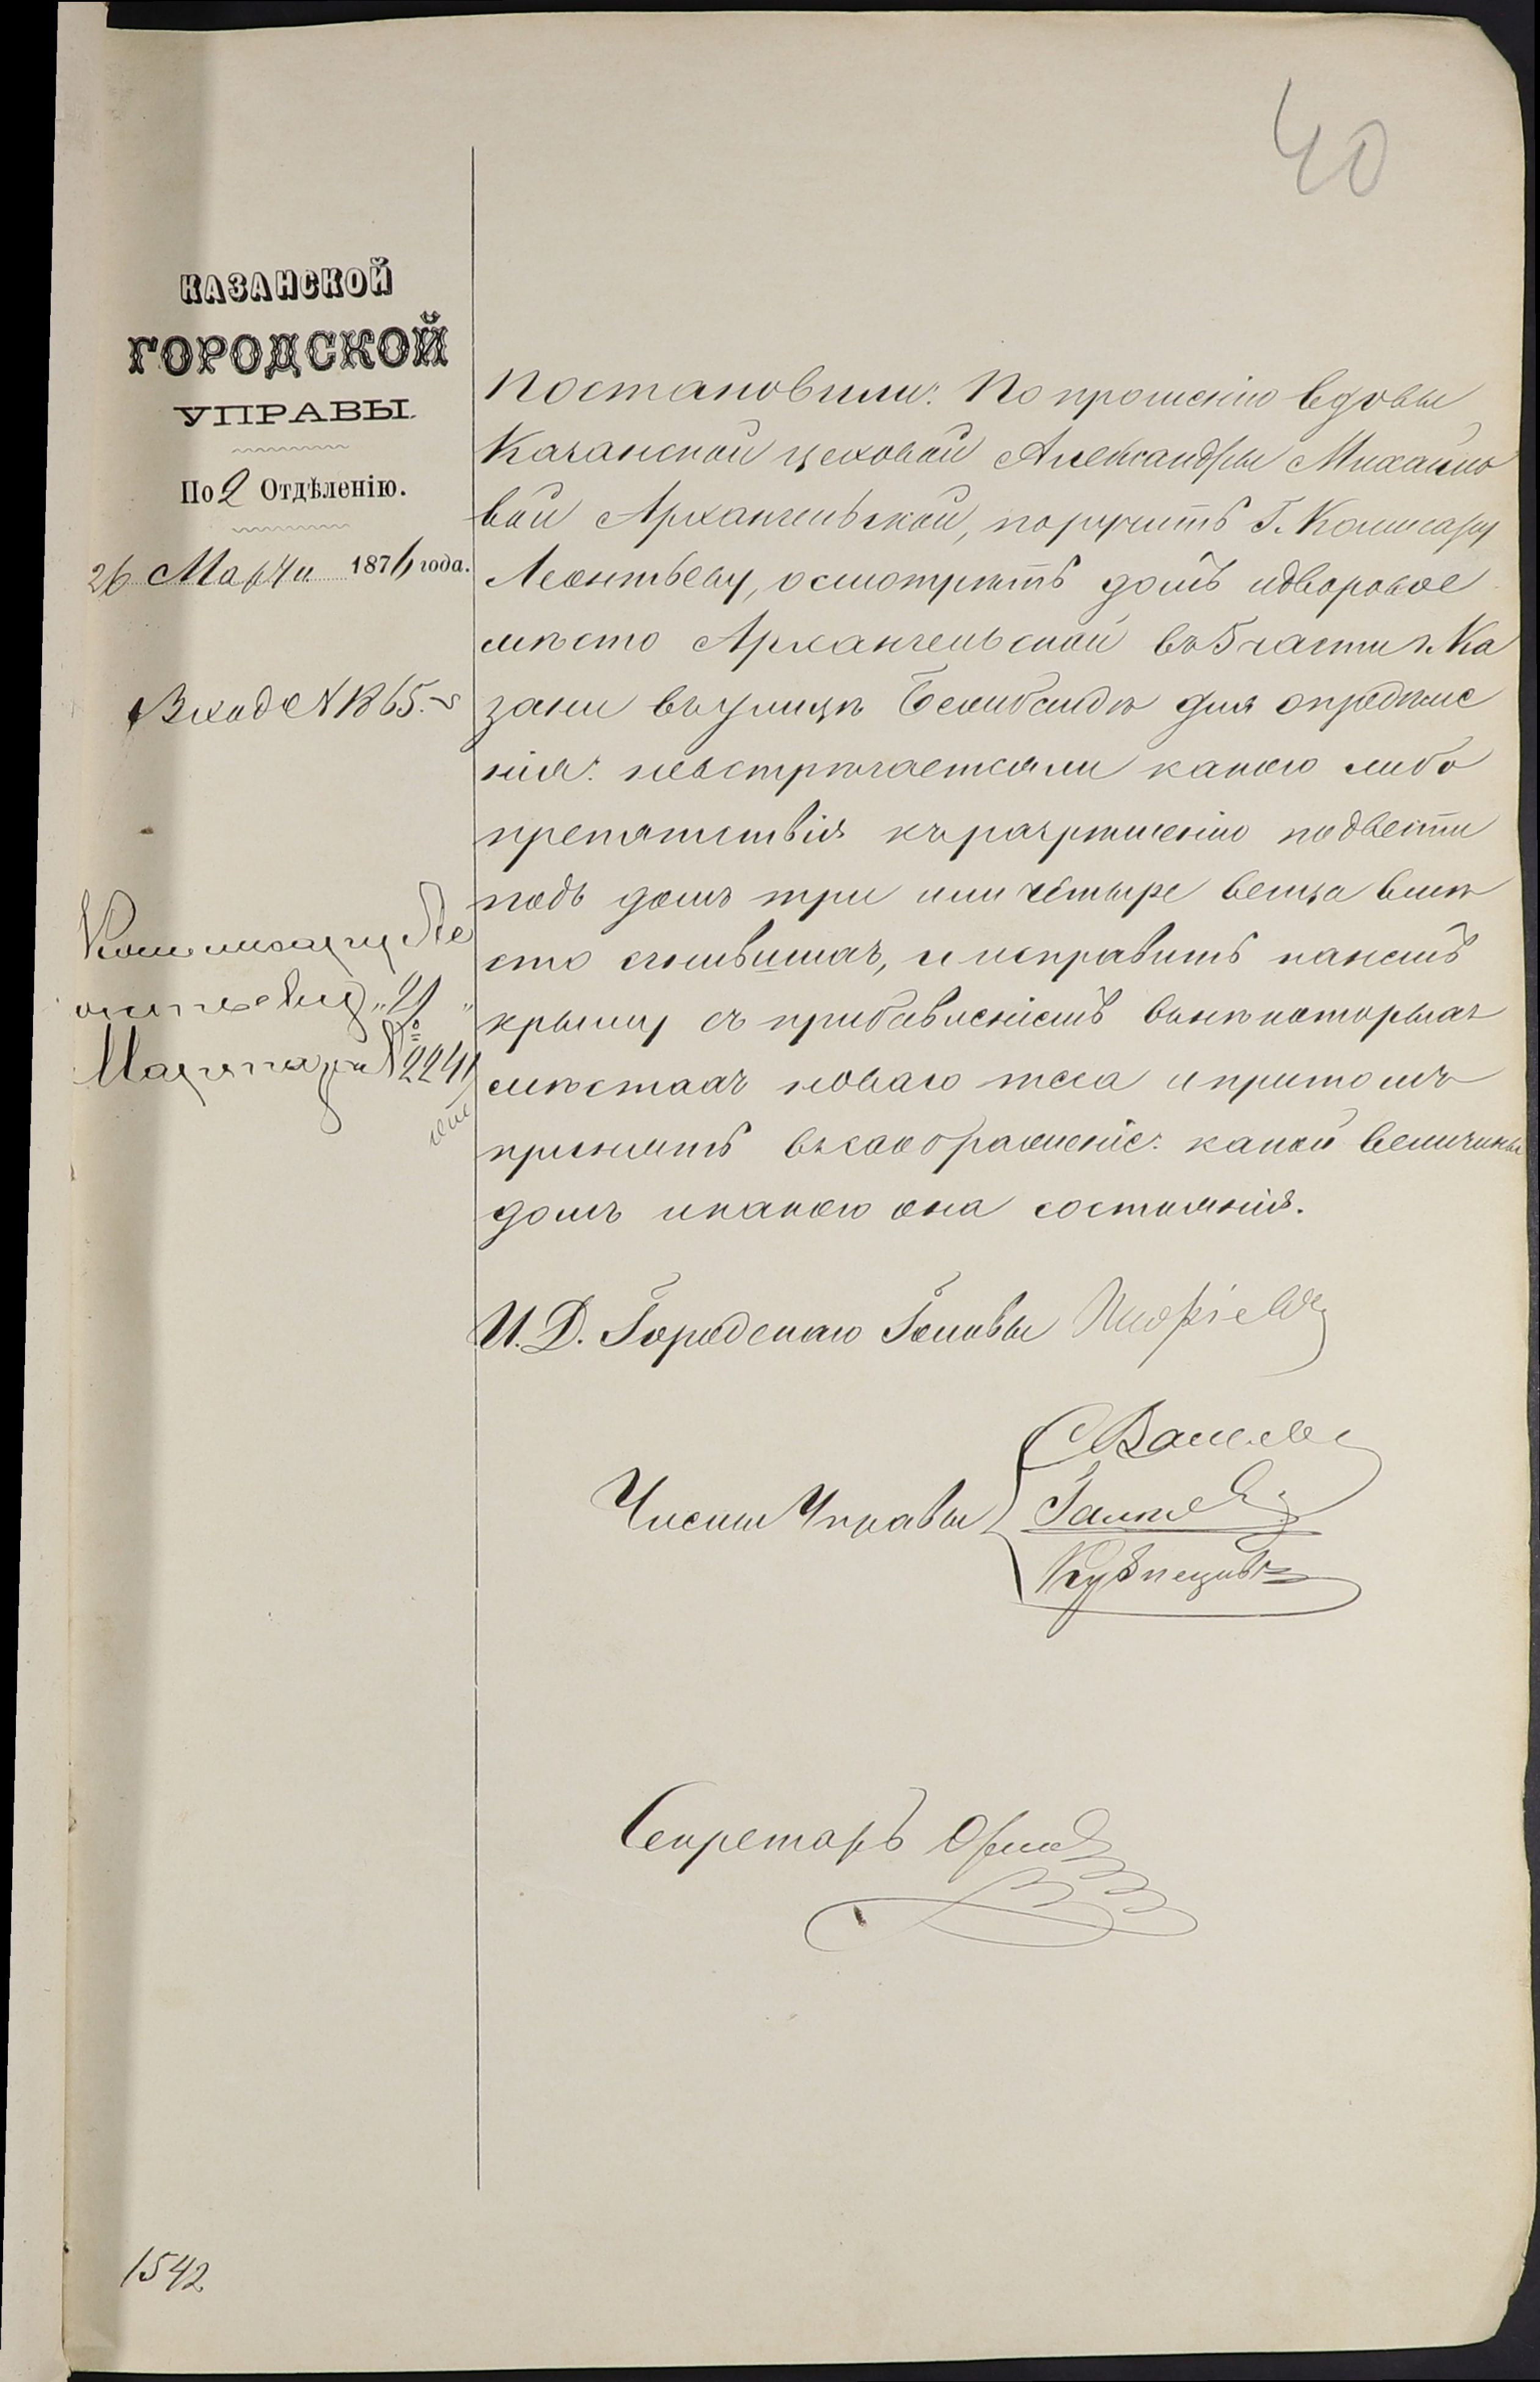 40
КАЗАНСКОЙ
ГОРОДСКОЙ
УПРАВЫ.
По 2 Отдѣленію.
26 Марта 1876 года.
Вход № 1365.
Коммисару Ле
онтьеву „29„
Марта за № 2241
Постановили: По прошенію вдовы
Казанской цеховой Александры Михайло
вой Архангельской, поручить Г. Комисару
Леонтьеву, осмотрѣть домъ и дворовое
мѣсто Архангельской въ 5 части г. Ка
зани въ улицѣ для опредѣле
нія: невстрѣчается ли какого либо
препятствія къ разрѣшенію подвести
подъ домъ три или четыре венца вмѣ
сто сгнившихъ, и исправить на немъ
крышу съ прибавленіемъ въ нѣкоторыхъ
мѣстахъ новаго теса и притомъ
принять въ соображеніе: какой величины
домъ и какого она состоянія.
И. Д. Городскаго Головы
Члены Управы
Кузнецовъ
Секретарь
1542